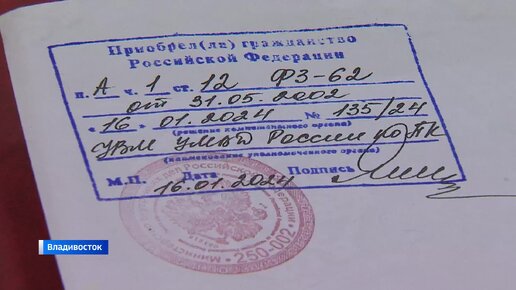 Приобрел(ла) гражданство
Российской Федерации
п. А ч. 1 ст. 12 ФЗ-62
от 31.05.2002
« 16 » 01.2024 № 135/24
(решение компетентного органа)
УВМ УМВД России по ПК
(наименование уполномоченного органа)
М.П. Дата Подпись
16.01.2024
250-002
Владивосток